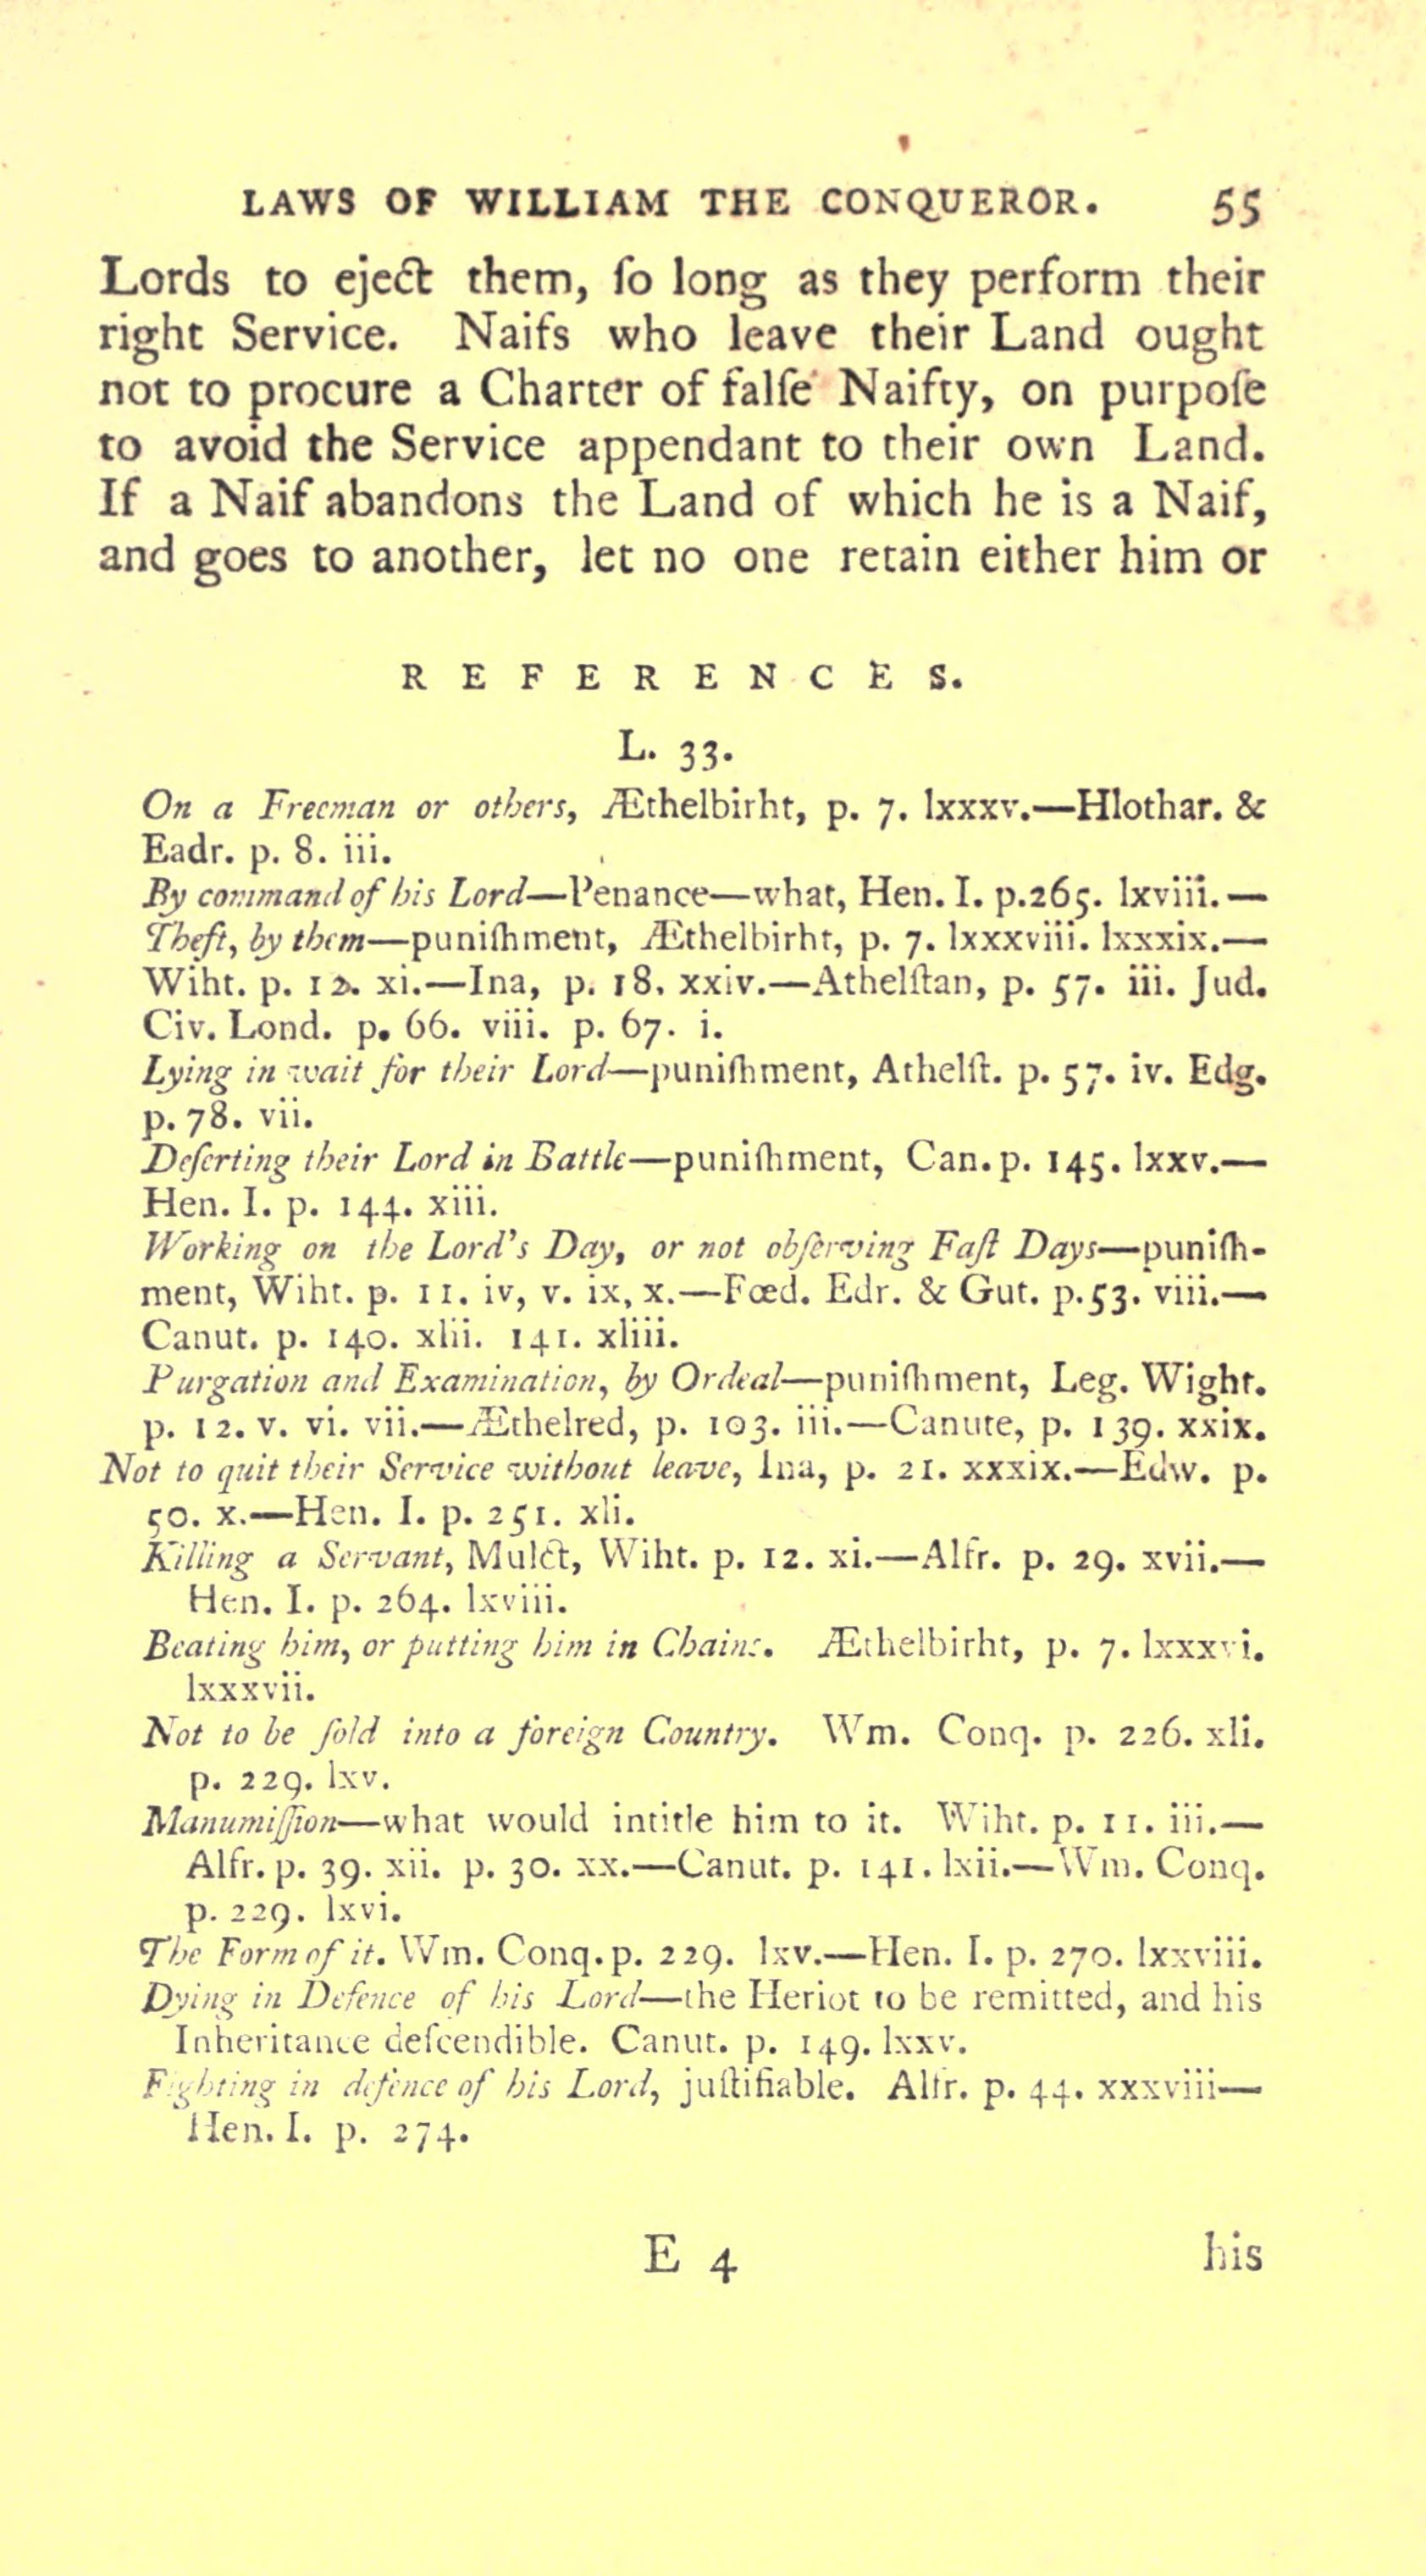 LAWS OF WILLIAM THE CONQUEROR. 55
Lords to eject them, ſo long as they perform their
right Service. Naifs who leave their Land ought
not to procure a Charter of falſe Naifty, on purpoſe
to avoid the Service appendant to their own Land.
If a Naif abandons the Land of which he is a Naif,
and goes to another, let no one retain either him or
REFERENCES.
L. 33.
On a Freeman or others, Æthelbirht, p. 7. lxxxv.—Hlothar. &
Eadr. p. 8. iii.
By command of his Lord—Penance—what, Hen. I. p.265. lxviii.—
Theft, by them—puniſhment, Æthelbirht, p. 7. lxxxviii. lxxxix.—
Wiht. p. 12. xi.—Ina, p. 18. xxiv.—Athelſtan, p. 57. iii. Jud.
Civ. Lond. p. 66. viii. p. 67. i.
Lying in wait for their Lord—puniſhment, Athelſt. p. 57. iv. Edg.
p. 78. vii.
Deſerting their Lord in Battle—puniſhment, Can. p. 145. lxxv.—
Hen. I. p. 144. xiii.
Working on the Lord's Day, or not obſerving Faſt Days—puniſh-
ment, Wiht. p. 11. iv, v. ix, x.—Fœd. Edr. & Gut. p.53. viii.—
Canut. p. 140. xlii. 141. xliii.
Purgation and Examination, by Ordeal—puniſhment, Leg. Wight.
p. 12. v. vi. vii.—Æthelred, p. 103. iii.—Canute, p. 139. xxix.
Not to quit their Service without leave, Ina, p. 21. xxxix.—Edw. p.
50. x.—Hen. I. p. 251. xli.
Killing a Servant, Mulct, Wiht. p. 12. xi.—Alfr. p. 29. xvii.—
Hen. I. p. 264. lxviii.
Beating him, or putting him in Chains. Æthelbirht, p. 7. lxxxvi.
lxxxvii.
Not to be ſold into a foreign Country. Wm. Conq. p. 226. xli.
p. 229. lxv.
Manumiſſion—what would intitle him to it. Wiht. p. 11. iii.—
Alfr. p. 39. xii. p. 30. xx.—Canut. p. 141. lxii.—Wm. Conq.
p. 229. lxvi.
The Form of it. Wm. Conq. p. 229. lxv.—Hen. I. p. 270. lxxviii.
Dying in Defence of his Lord—the Heriot to be remitted, and his
Inheritance deſcendible. Canut. p. 149. lxxv.
Fighting in defence of his Lord, juſtifiable. Alfr. p. 44. xxxviii—
Hen. I. p. 274.
E 4 his